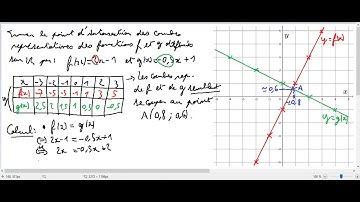 Trouver le point d'intersection des courbes
représentatives des fonctions f et g définies
sur ℝ par: f(x)=2x-1 et g(x)=-0,5x+1
x -3 -2 -1 0 1 2 3
f(x) -7 -5 -3 -1 1 3 5
g(x) 2,5 2 1,5 1 0,5 0 -0,5
les courbes rep.
de f et de g
se coupent au point
A(0,8 ; 0,6).
Calcul: • f(x) = g(x)
⇔ 2x-1 = -0,5x+1
⇔ 2x = -0,5x+2
y=f(x)
≈0,6
A
≈0,8
y=g(x)